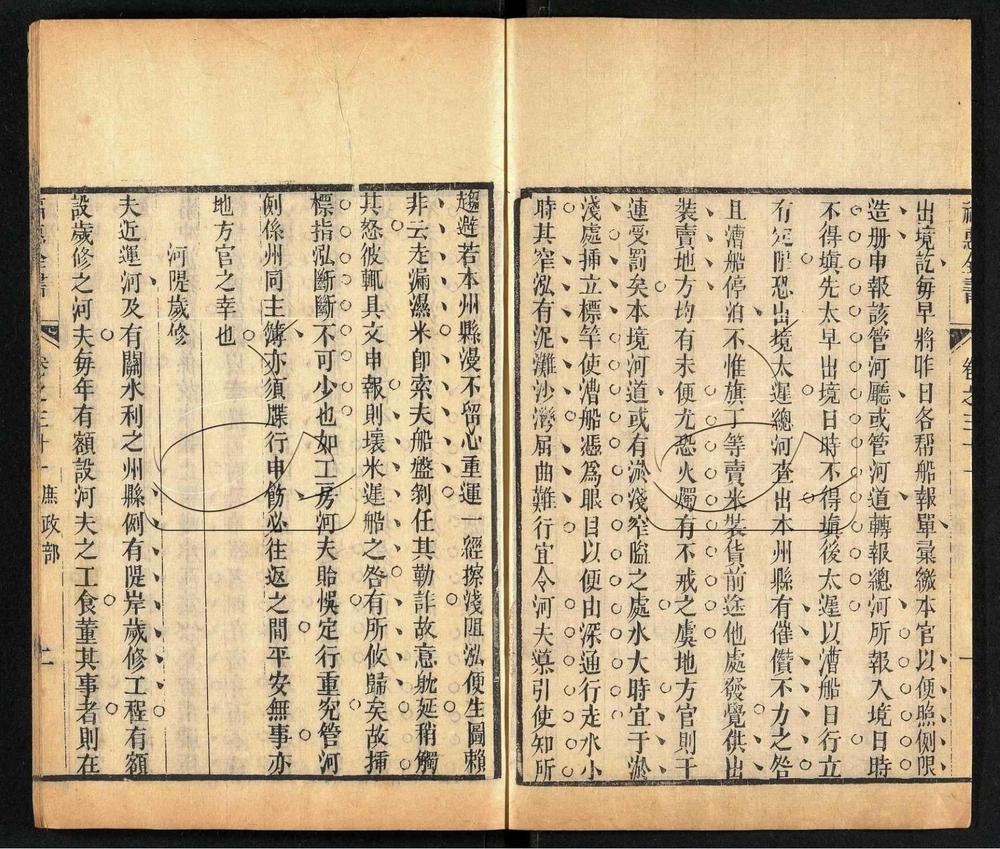 福惠全書
卷之三十一
出境訖每早將昨日各帮船報單彚繳本官以便照例限
造册申報該管河廳或管河道轉報總河所報入境日時
不得填先太早出境日時不得填後太遲以漕船日行立
有定限恐出境太遲總河查出本州縣有催儹不力之咎
且漕船停泊不惟旗丁等賣米裝貨前途他處發覺供出
裝賣地方均有未便尤恐火燭有不戒之虞地方官則干
連受罰矣本境河道或有淤淺窄隘之處水大時宜于淤
淺處插立標竿使漕船憑爲眼目以便由深通行走水小
時其窄泓有泥灘沙灣屈曲難行宜令河夫導引使知所
趨避若本州縣漫不留心重運一經擦淺阻泓便生圖賴
非云走漏濕米卽索夫船盤剝任其勒詐故意躭延稍觸
其怒彼輒具文申報則壞米遲船之咎有所攸歸矣故插
標指泓斷斷不可少也如工房河夫貽悞定行重究管河
例係州同主簿亦須牒行申飭必往返之間平安無事亦
地方官之幸也
河隄歲修
夫近運河及有關水利之州縣例有隄岸歲修工程有額
設歲修之河夫每年有額設河夫之工食董其事者則在
福惠全書
卷之三十一
庶政部
二